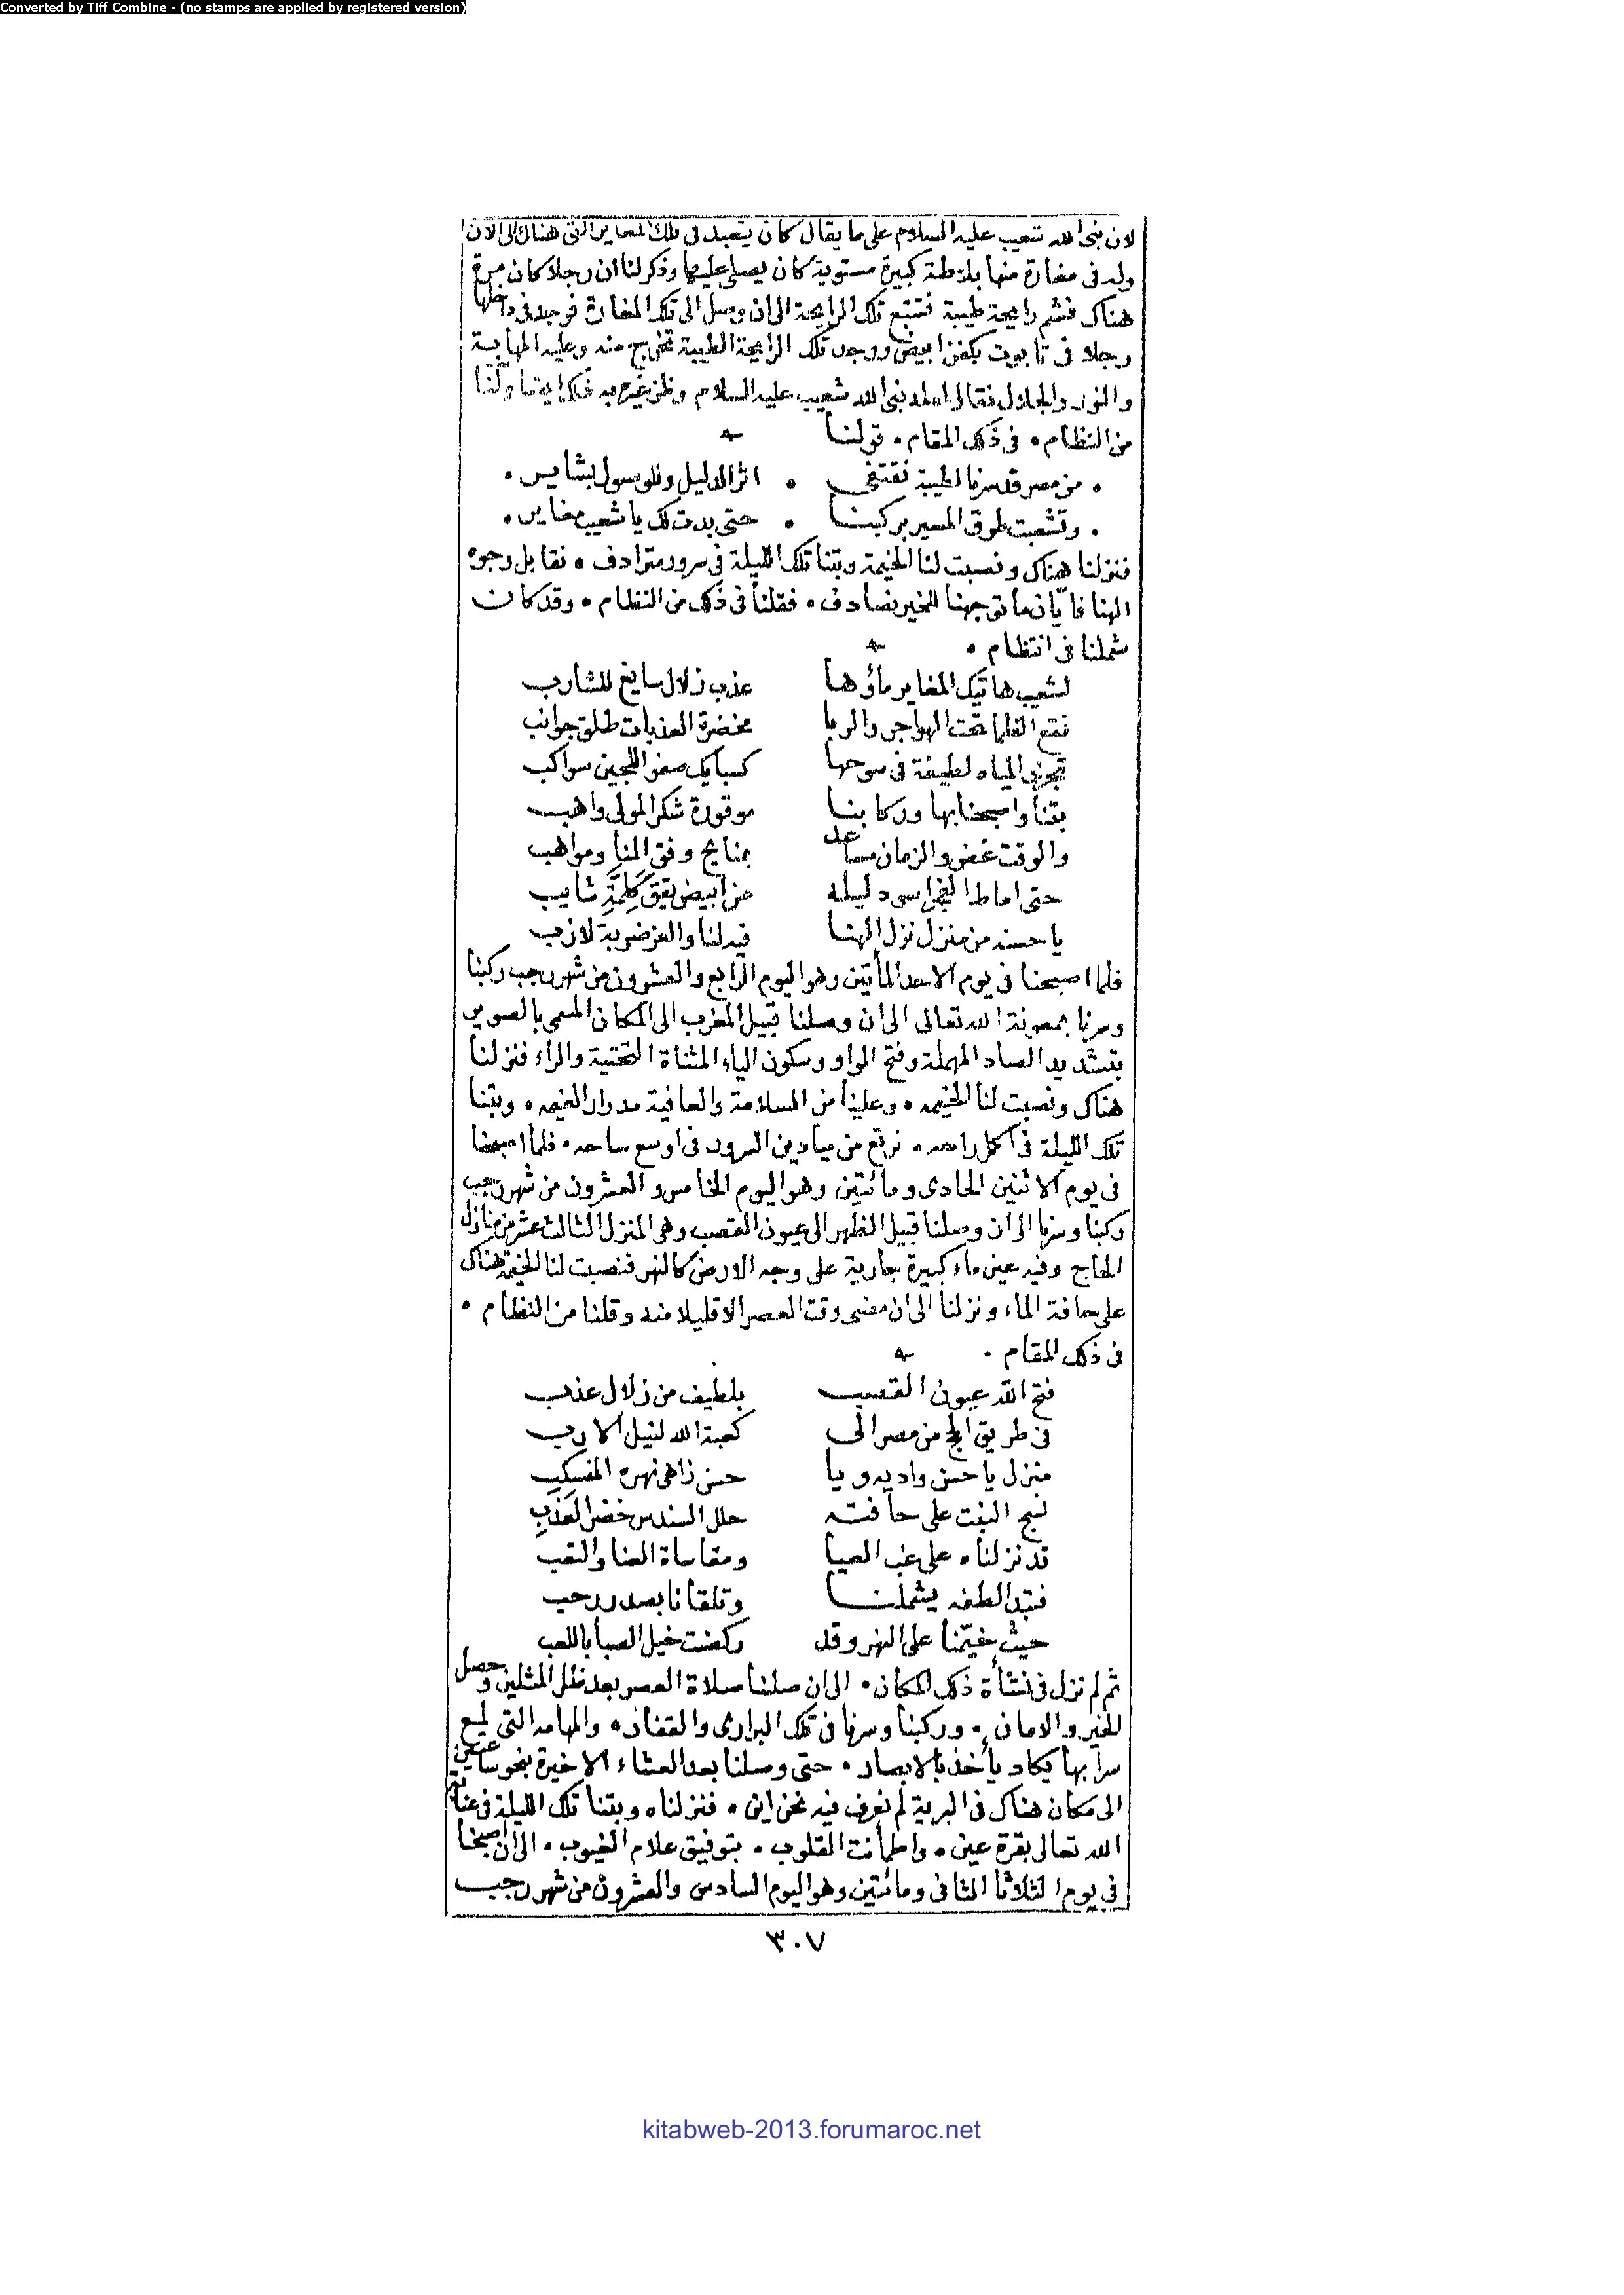 Converted by Tiff Combine - (no stamps are applied by registered version)
لان نبى الله شعيب عليه السلام على ما يقال كان يتعبد فى تلك المغاير التى هناك الى الآن
وله فى مغارة منها بلاطة كبيرة مستوية كان يصلى عليها وذكر لنا ان رجلا كان مرة
هناك فشم رايحة طيبة فتتبع تلك الرايحة الى ان وصل الى تلك المغارة فوجد فى داخلها
رجلا فى تابوت بكفن ابيض ووجد تلك الرايحة الطيبة تخرج منه وعليه المهابة
والنور والجلال فقال لعله نبى الله شعيب عليه السلام
من النظام • فى ذلك المقام • قولنا
• من مصر قد سرنا لطيبة نقتفى • اثر الدليل وللوصول بشاير •
• وتشعبت طرق المسير بركبنا • حتى بدت لك يا شعيب مغاير •
فنزلنا هناك ونصبت لنا الخيمة وبتنا تلك الليلة فى سرور مترادف • نقابل وجوه
الهنا فايّان ما توجهنا للخير نصادف • فقلنا فى ذلك من النظام • وقد كان
شملنا فى انتظام •
لشعيب هاتيك المغاير ماؤها عذب زلال سايغ للشارب
نقع الظما تحت الهواجر والربا مخضرة العذبات طلق جوانب
تجرى المياه لطيفة فى سوحها كسبايك صفو اللجين سواكب
بتنا واصبحنا بها وركابنا موقورة شكرا لمولى واهب
والوقت غض والزمان مساعد بمنايح وفق المنا ومواهب
حتى اماط الفجر اسود ليله عن ابيض يقق كلمّة شايب
يا حسنه من منزل نزل الهنا فيه لنا والعز ضربة لازب
فلما اصبحنا فى يوم الاحد المأتين وهو اليوم الرابع والعشرون من شهر رجب ركبنا
وسرنا بمعونة الله تعالى الى ان وصلنا قبيل المغرب الى المكان المسمى بالصوير
بتشديد الصاد المهملة وفتح الواو وسكون الياء المثناة التحتية والراء فنزلنا
هناك ونصبت لنا الخيمه • وعلينا من السلامة والعافية مدرار الغيمه • وبتنا
تلك الليلة فى اكمل راحه • نرتع من ميادين السرور فى اوسع ساحه • فلما اصبحنا
فى يوم الاثنين الحادى ومائتين وهو اليوم الخامس والعشرون من شهر رجب
ركبنا وسرنا الى ان وصلنا قبيل الظهر الى عيون القصب وهى المنزل الثالث عشر من منازل
الحاج وفيه عين ماء كبيرة جارية على وجه الارض كالنهر فنصبت لنا الخيمة هناك
على حافة الماء ونزلنا الى ان مضى وقت العصر الا قليلا منه وقلنا من النظام •
فى ذلك المقام •
فتح الله عيون القصب بلطيف من زلال عذب
فى طريق الحج من مصر الى كعبة الله لنيل الارب
منزل يا حسن واديه ويا حسن زاهى نهره المنسكب
نسج النبت على حافته حلل السندس خضر العَذَبِ
قد نزلناه على غب العيا ومقاساة العنا والتعب
فتبدّا لطفه يشملنا وتلقانا بصدر رحب
حيث خيّمنا على النهر وقد ركضت خيل الصبا باللعب
ثم لم نزل فى نشأة ذلك المكان • الى ان صلينا صلاة العصر بعد ظل المثلين وحصل
الخير والامان • وركبنا وسرنا فى تلك البرارى والقفار • والمهامه التى لميع
سرابها يكاد يأخذ بالابصار • حتى وصلنا بعد العشاء الاخيرة بنحو ساعتين
الى مكان هناك فى البرية لم نعرف فيه نحن اين • فنزلناه وبتنا تلك الليلة فى عناية
الله تعالى بقرة عين • واطمأنت القلوب • بتوفيق علام الغيوب • الى ان اصبحنا
فى يوم الثلاثا الثانى ومائتين وهو اليوم السادس والعشرون من شهر رجب
٣٠٧
kitabweb-2013.forumaroc.net